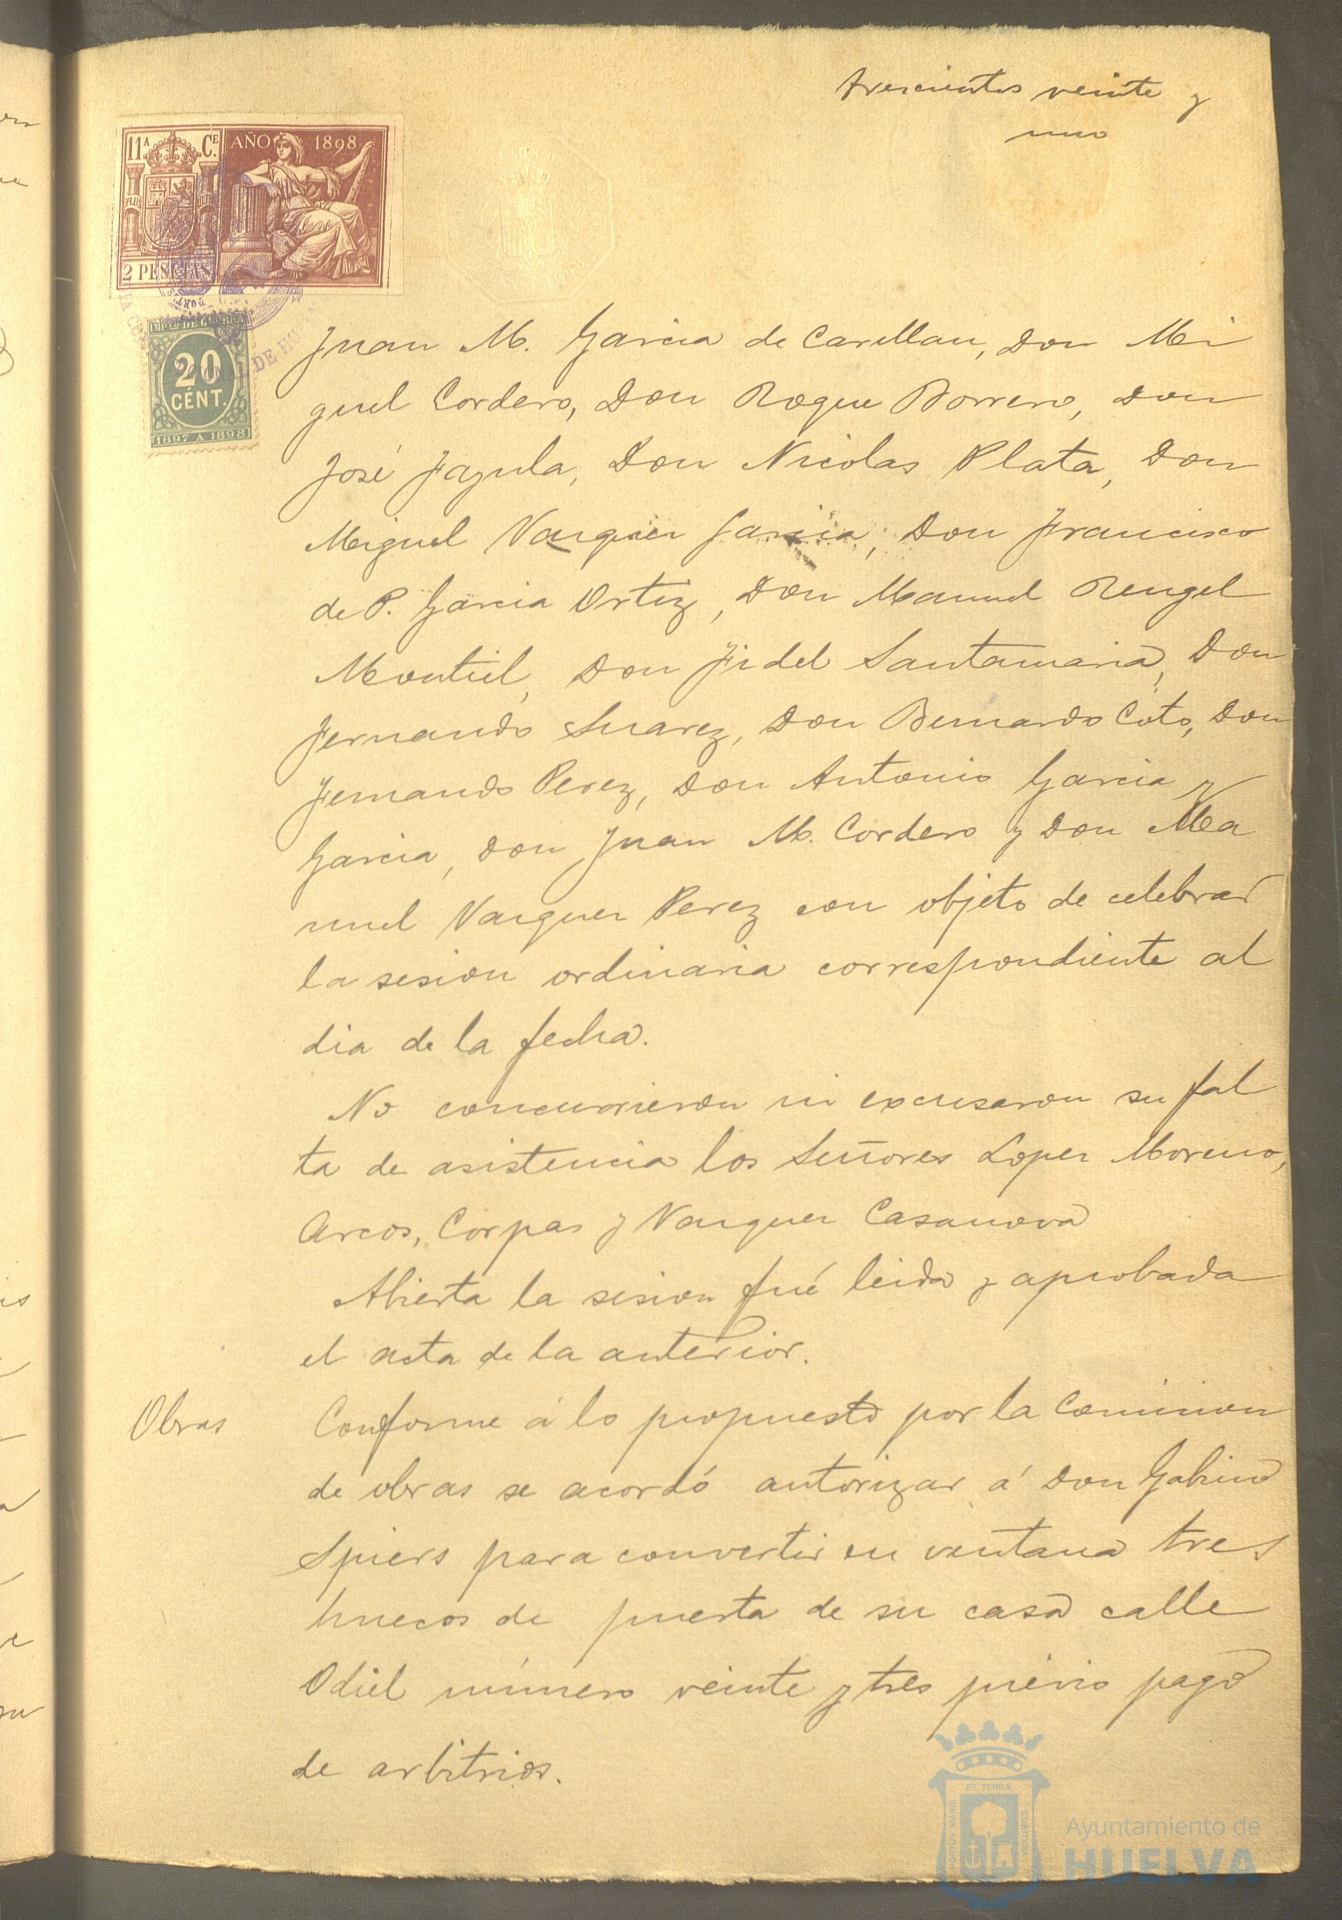 trescientos veinte y
uno
11ª Cᴱ. AÑO 1898
2 PESETAS
20
CÉNT.
1897 A 1898
Juan M. Garcia de Carellan, Don Mi
guel Cordero, Don Roque Borrero, Don
José Jazula, Don Nicolas Plata, Don
Miguel Vazquez Garcia, Don Francisco
de P. Garcia Ortiz, Don Manuel Rengel
Montiel, Don Fidel Santamaria, Don
Fernando Suarez, Don Bernardo Coto, Don
Fernando Perez, Don Antonio Garcia y
Garcia, Don Juan M. Cordero y Don Ma
nuel Vazquez Perez con objeto de celebrar
la sesion ordinaria correspondiente al
dia de la fecha.
No concurrieron ni excusaron su fal
ta de asistencia los Señores Lopez Moreno,
Arcos, Corpas y Vazquez Casanova
Abierta la sesion fué leida y aprobada
el acta de la anterior.
Obras
Conforme á lo propuesto por la Comision
de obras se acordó autorizar á Don Gabino
Spiers para convertir en ventana tres
huecos de puerta de su casa calle
Odiel número veinte y tres prévio pago
de arbitrios.
Ayuntamiento de
HUELVA